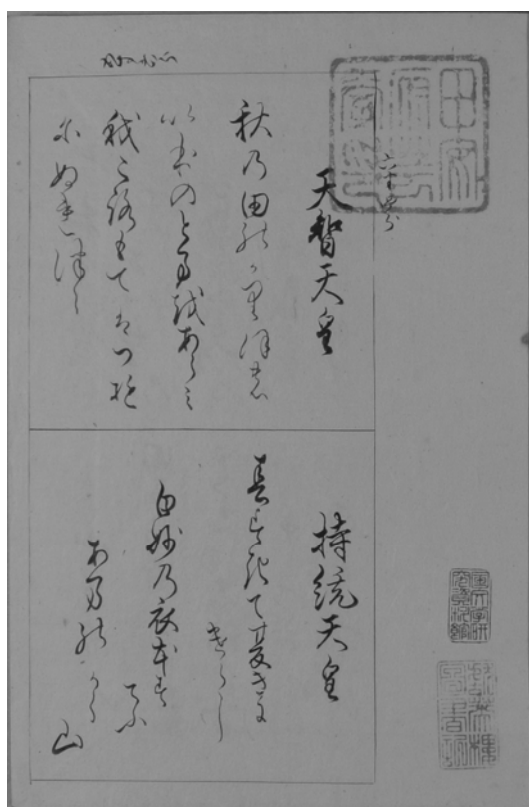 天智天皇
秋乃田のかりほの
いほのとまをあらみ
我ころもてはつゆ
にぬれつゝ
持統天皇
春すきて夏きに
けらし
白妙乃衣ほす
てふ
あまのかく
山